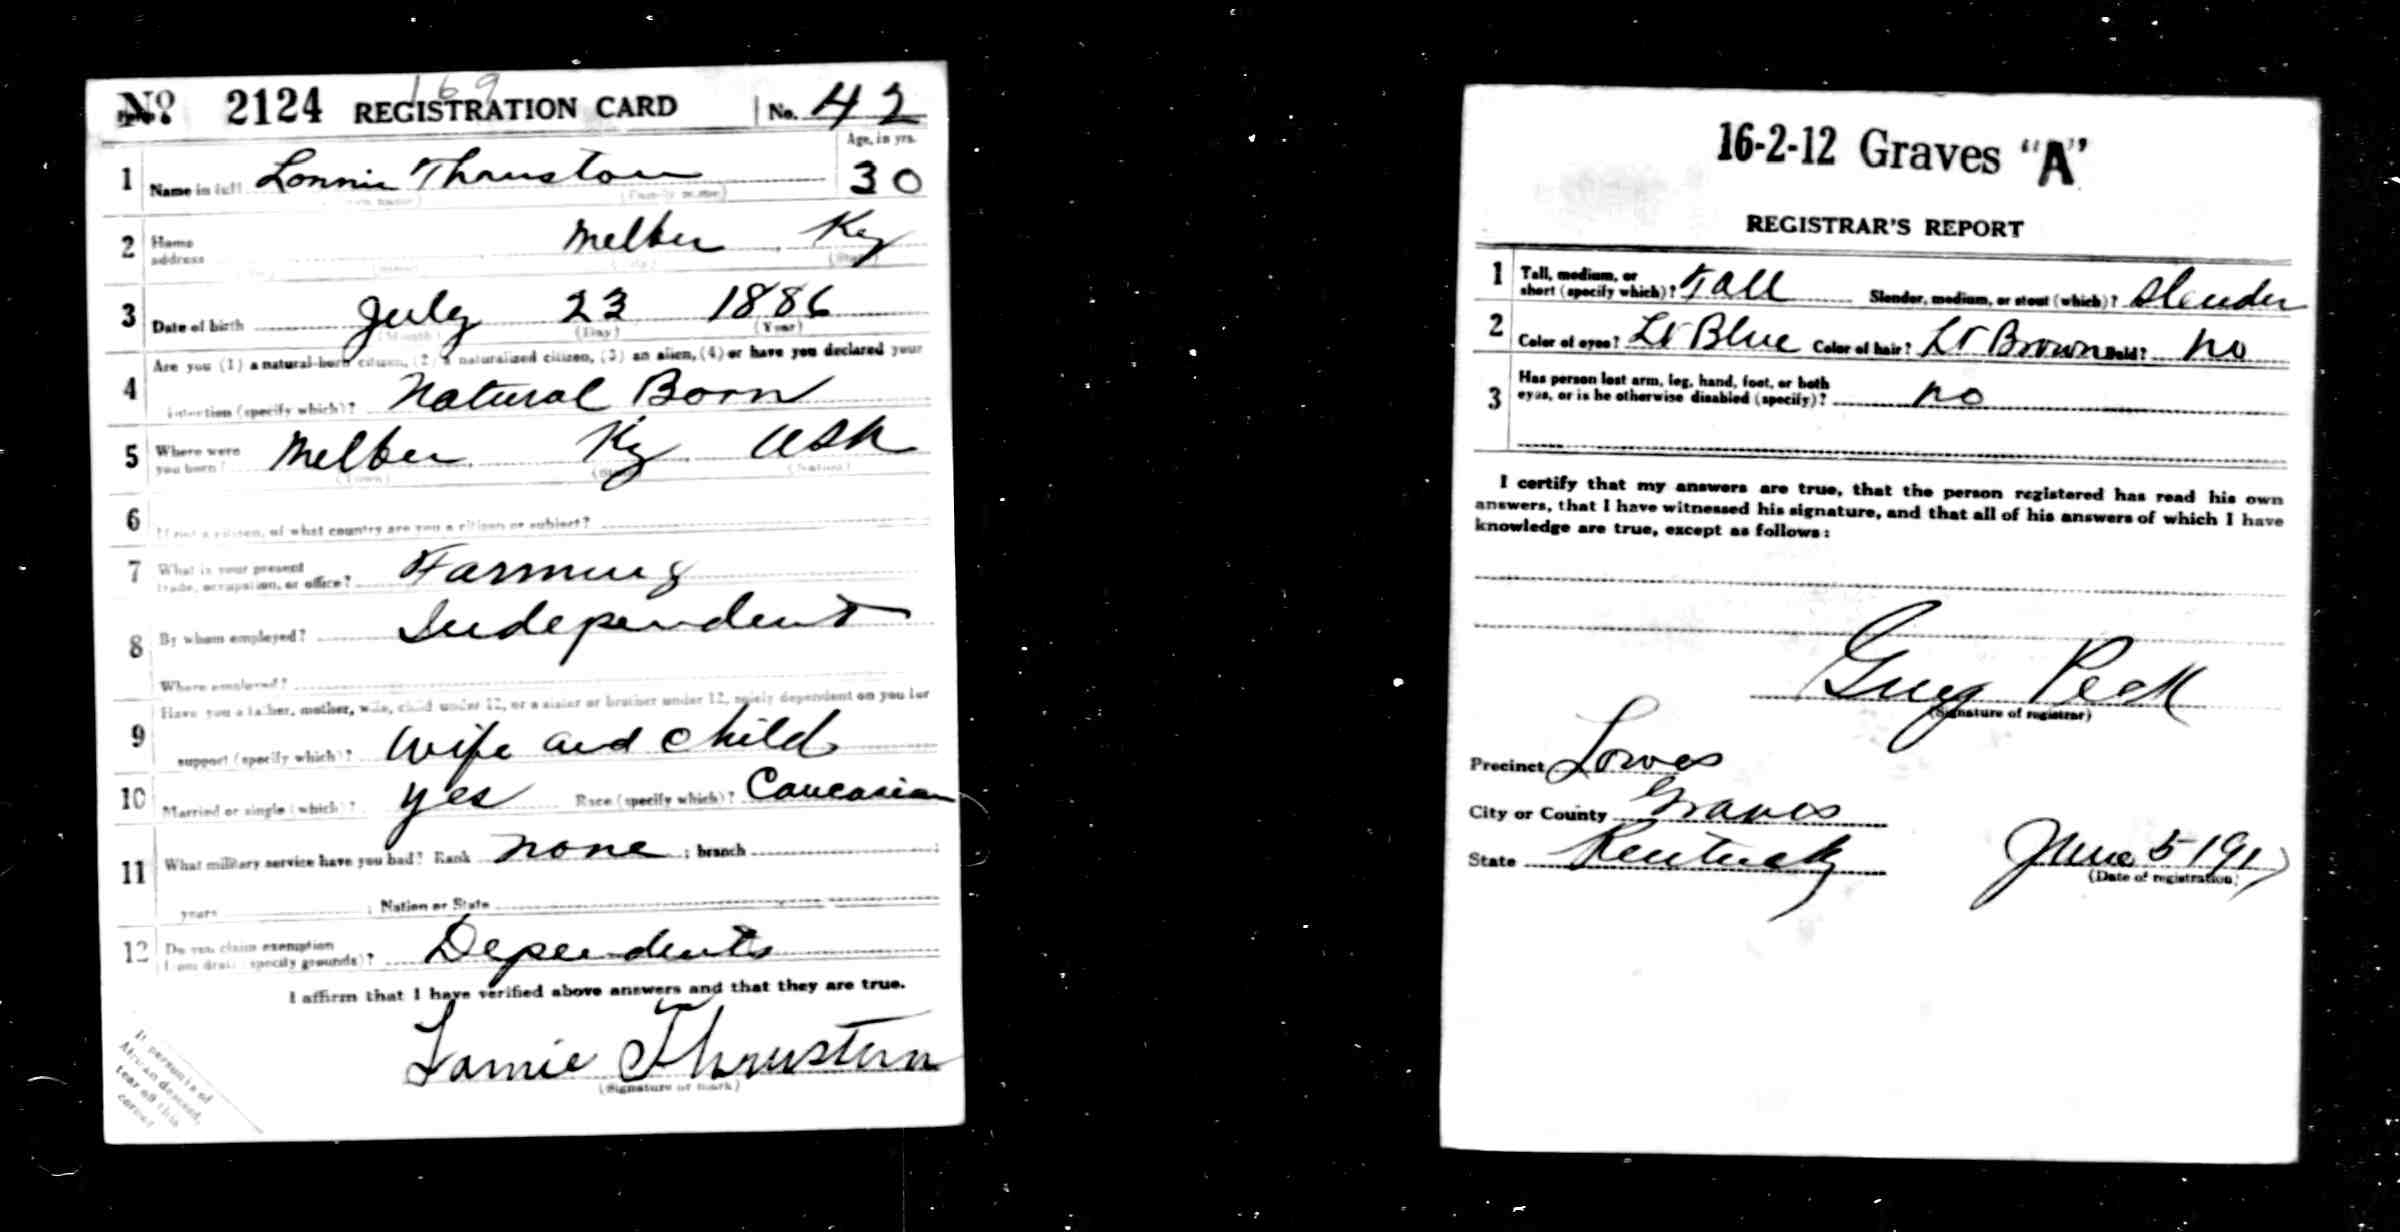 169
No. 2124 REGISTRATION CARD No. 42
Age, in yrs.
1 Name in full Lonnie Thruston 30
(Family name)
2 Home address Melber Ky
(State)
3 Date of birth July 23 1886
(Month) (Day) (Year)
Are you (1) a natural-born citizen, (2) a naturalized citizen, (3) an alien, (4) or have you declared your
4 intention (specify which)? Natural Born
5 Where were you born? Melber Ky USA
(Town) (State) (Nation)
6 If not a citizen, of what country are you a citizen or subject?
7 What is your present trade, occupation, or office? Farming
8 By whom employed? Independent
Where employed?
Have you a father, mother, wife, child under 12, or a sister or brother under 12, solely dependent on you for
9 support (specify which)? Wife and child
10 Married or single (which)? yes Race (specify which)? Caucasian
11 What military service have you had? Rank none ; branch ;
years ; Nation or State
12 Do you claim exemption from draft (specify grounds)? Dependents
I affirm that I have verified above answers and that they are true.
Lonnie Thruston
(Signature or mark)
If person is of
African descent,
tear off this
corner
16-2-12 Graves "A"
REGISTRAR'S REPORT
1 Tall, medium, or short (specify which)? Tall Slender, medium, or stout (which)? Slender
2 Color of eyes? Lt Blue Color of hair? Lt Brown Bald? no
3 Has person lost arm, leg, hand, foot, or both eyes, or is he otherwise disabled (specify)? no
I certify that my answers are true, that the person registered has read his own
answers, that I have witnessed his signature, and that all of his answers of which I have
knowledge are true, except as follows:
Guy Peck
(Signature of registrar)
Precinct Lowes
City or County Graves
State Kentucky June 5 1917
(Date of registration)